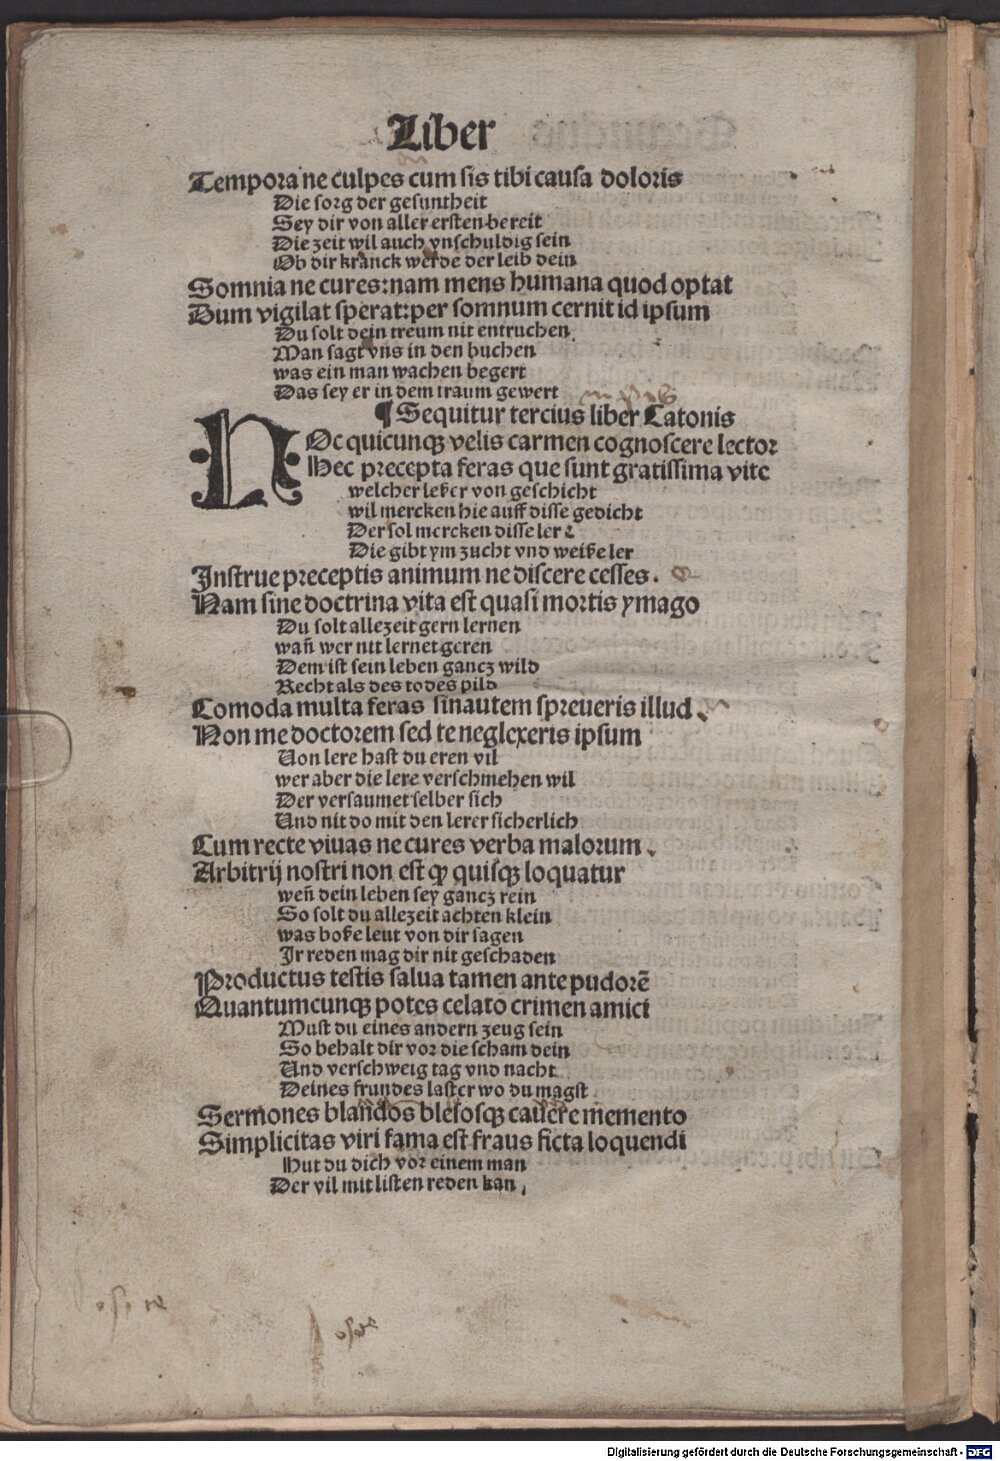 Liber
Tempora ne culpes cum sis tibi causa doloris
Die sorg der gesuntheit
Sey dir von aller ersten bereit
Die zeit wil auch vnschuldig sein
Ob dir kranck werde der leib dein
Somnia ne cures:nam mens humana quod optat
Dum vigilat sperat:per somnum cernit id ipsum
Du solt dein treum nit entruchen
Man sagt vns in den buchen
was ein man wachen begert
Das sey er in dem traum gewert
¶ Sequitur tercius liber Catonis
HOc quicunqꝫ velis carmen cognoscere lector
Hec precepta feras que sunt gratissima vite
welcher leßer von geschicht
wil mercken hie auff disse gedicht
Der sol mercken disse ler
Die gibt ym zucht vnd weiße ler
Instrue preceptis animum ne discere cesses.
Nam sine doctrina vita est quasi mortis ymago
Du solt allezeit gern lernen
wañ wer nit lernet geren
Dem ist sein leben gancz wild
Recht als des todes pild
Comoda multa feras sinautem spreueris illud
Non me doctorem sed te neglexeris ipsum
Uon lere hast du eren vil
wer aber die lere verschmehen wil
Der versaumet selber sich
Und nit do mit den lerer sicherlich
Cum recte viuas ne cures verba malorum.
Arbitrij nostri non est qꝫ quisqꝫ loquatur
weñ dein leben sey gancz rein
So solt du allezeit achten klein
was boße leut von dir sagen
Ir reden mag dir nit geschaden
Productus testis salua tamen ante pudorē
Quantumcunqꝫ potes celato crimen amici
Must du eines andern zeug sein
So behalt dir vor die scham dein
Und verschweig tag vnd nacht
Deines frundes laster wo du magst
Sermones blandos blesosqꝫ cauere memento
Simplicitas viri fama est fraus ficta loquendi
Hut du dich vor einem man
Der vil mit listen reden kan
Digitalisierung gefördert durch die Deutsche Forschungsgemeinschaft - DFG